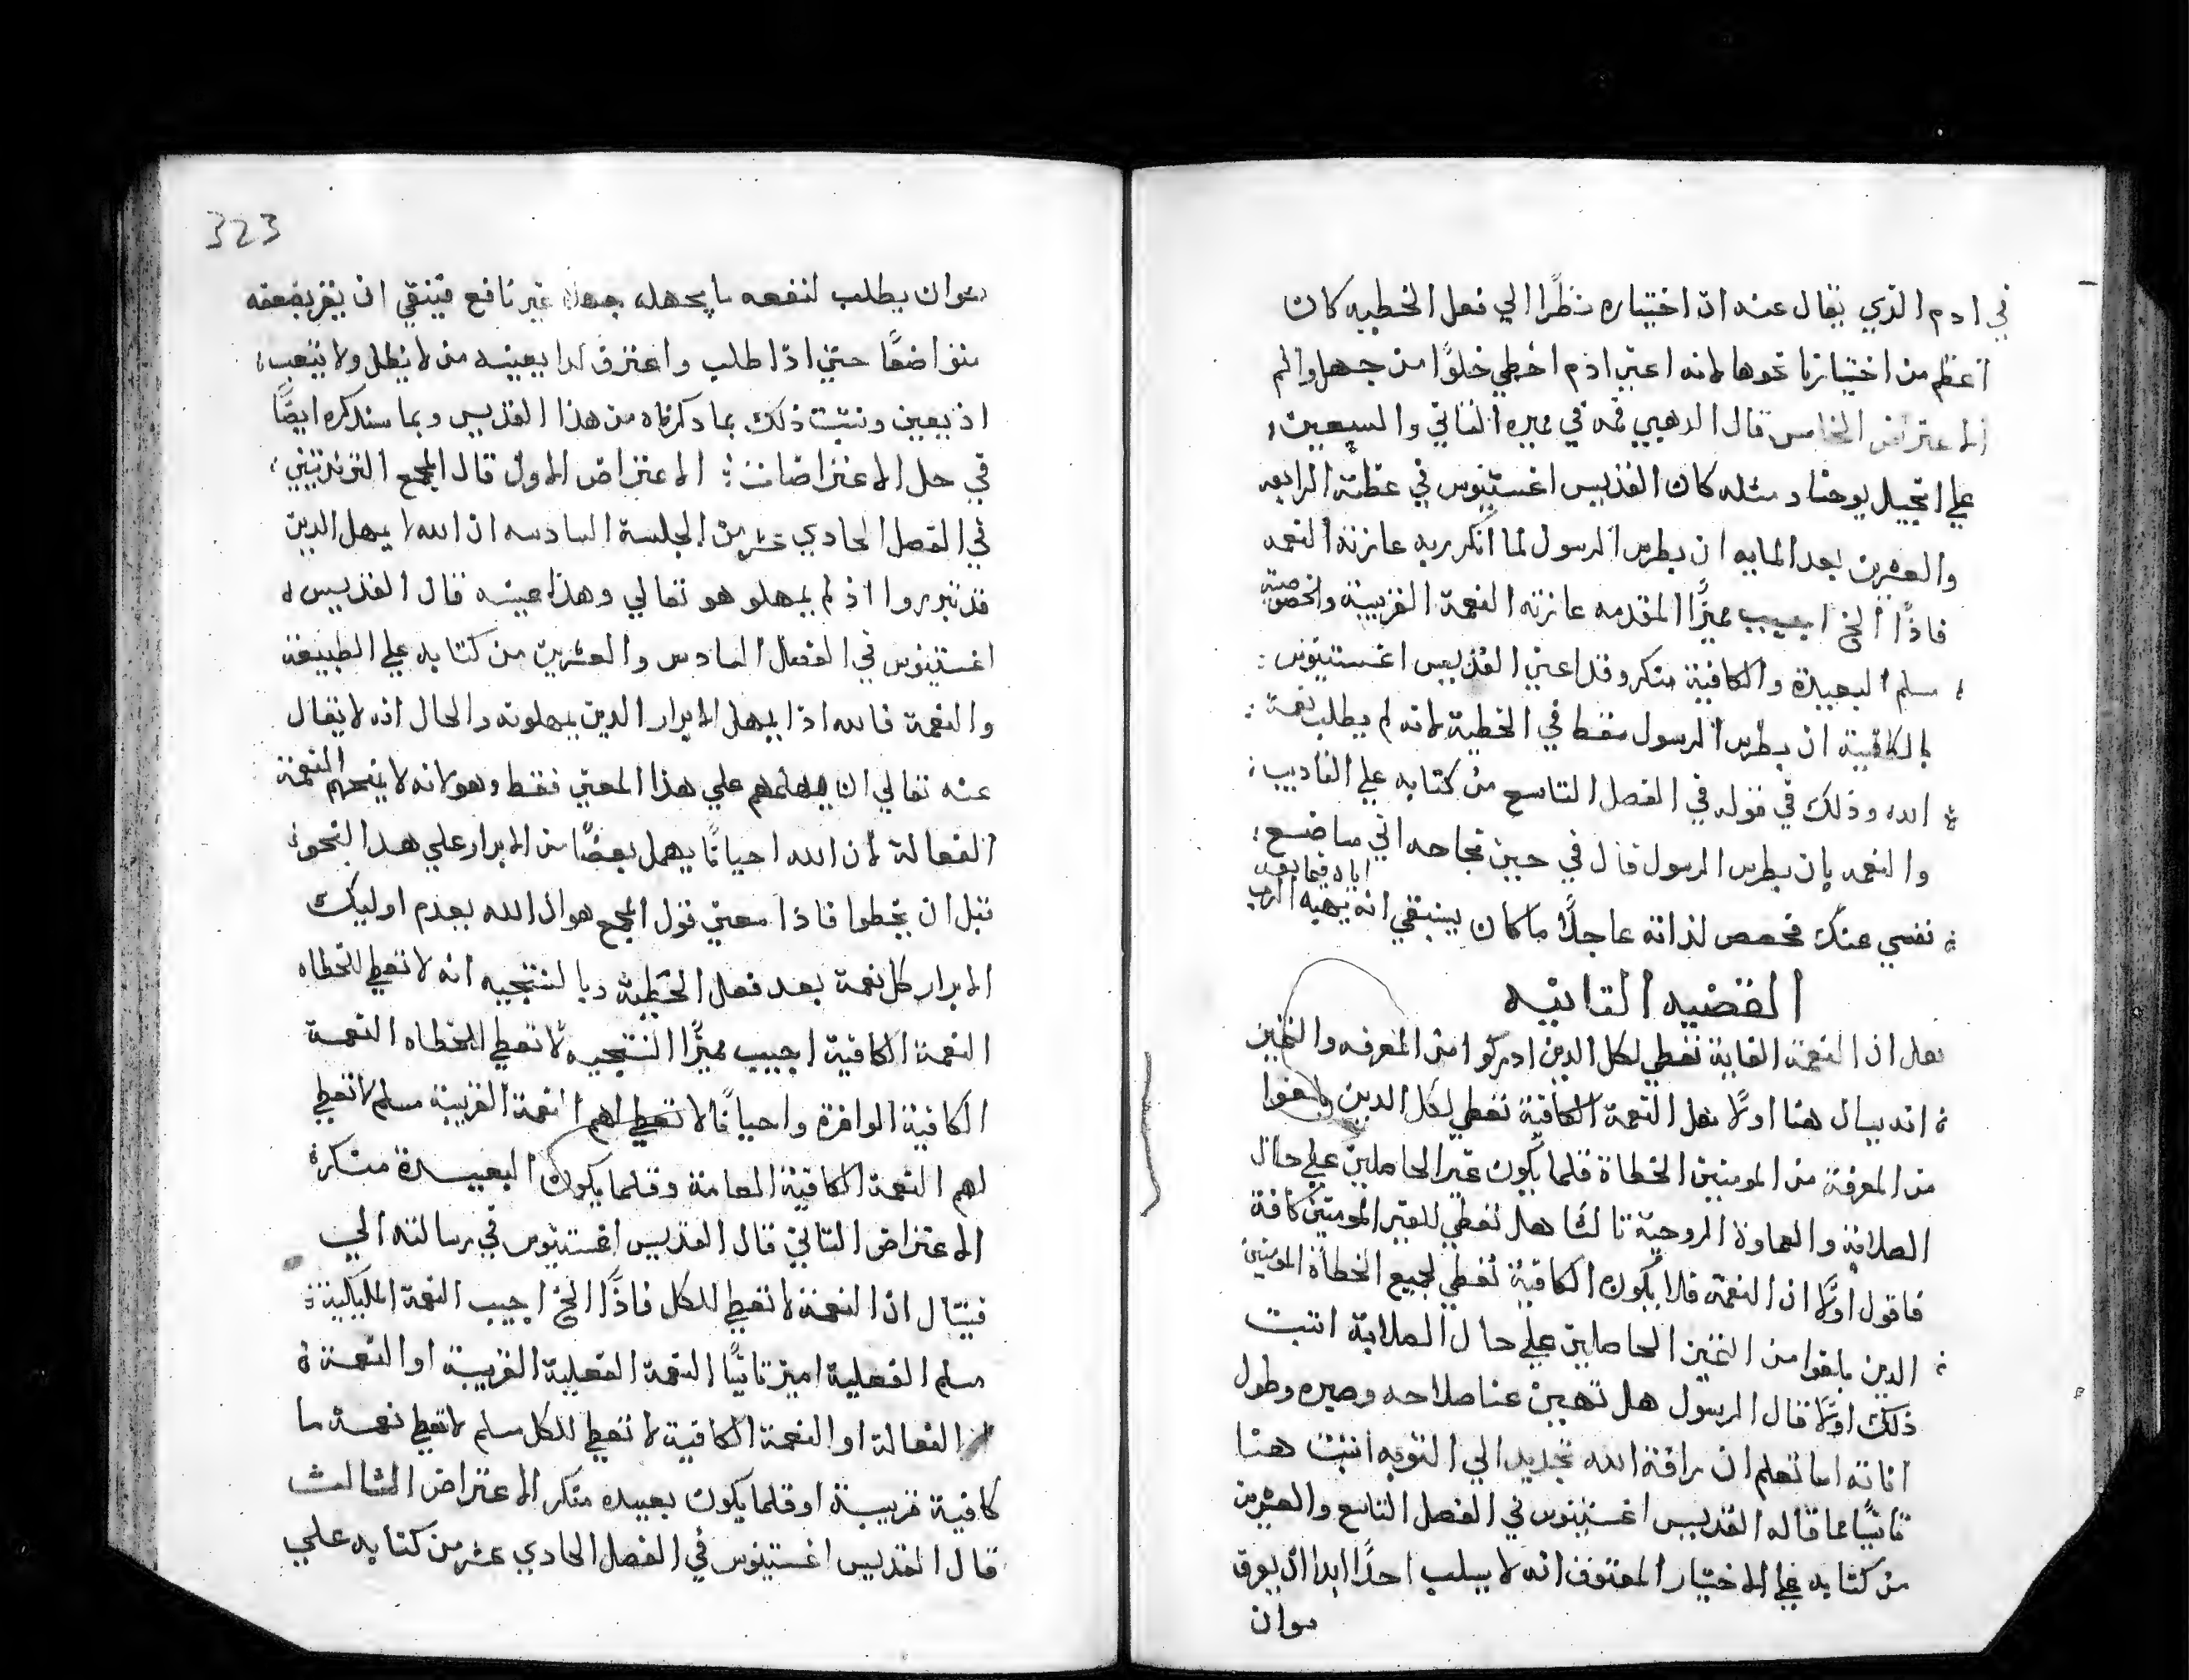 في ادم الذي يقال عنه ان اختياره نظرًا الي فعل الخطيه كان
اعظم من اختيارنا نحوها لانه اعني ادم اخطي خلوًا من جهل والم
الاعتراض الخامس قال الدهبي فمه في ميمره الثاني والسبعين
علي انجيل يوحنا ومثله كان القديس اغستينوس في عظته الرابعه
والعشرين بعد المايه ان بطرس الرسول لما انكر ربه عازته النعمه
فاذًا الخ اجيب مميزًا المقدمه عازته النعمة القريبية والخصوصية
مسلم البعيدة والكافية منكر وقد اعني القديس اغستينوس
بالكافية ان بطرس الرسول سقط في الخطية لانه لم يطلب نعمة
الله وذلك في قوله في الفصل التاسع من كتابه علي التاديب
والنعمه بان بطرس الرسول قال في حين نجاحه اني ساضع
اياه فيما بعد
نفسي عنك فحمص لذاته عاجلًا ما كان ينبغي انه يهبه الرب
القضيه التانيه
هل ان النعمة الغاية تعطي لكل الدين ادركوا سن المعرفه والتميز
انه يسال هنا اولًا هل النعمة الكافية تعطي لكل الدين بلغوا
من المعرفة من المومنين الخطاة قلما يكون غير الحاصلين علي حال
الصلابة والعماوة الروحية ثالثًا هل تعطي للغير المومنين كافة
فاقول اولًا ان النعمة قلا يكون الكافية تعطي لجميع الخطاة المومنين
الدين بلغوا سن التميز الحاصلين علي حال الصلابة اتبت
ذلك اولًا قال الرسول هل تهين غنا صلاحه وصبره وطول
اناته اما تعلم ان رافة الله تجديد الي التوبه اتبت هنا
ثانيًا مما قاله القديس اغستينوس في الفصل التاسع والعشرين
من كتابه علي الاختيار المعتوف انه لا يسلب احدًا ابدا ان يعرف
سوان
323
سوان يطلب لنفعه ما يجهله جهلا غير نافع فينبغي ان يقر بضعفه
متواضعًا حتي اذا طلب واعترف لدا يعينه من لا يظل ولا يتعب
اذ يعين ونتبت ذلك بما دكرناه من هذا القديس وبما سندكره ايضًا
في حل الاعتراضات الاعتراض الاول قال المجمع التريدنتيني
في الفصل الحادي عشر من الجلسة السادسه ان الله لا يهمل الدين
قد تبرروا اذ لم يهملو هو تعالي وهذا عينه قال القديس
اغستينوس في الفصل السادس والعشرين من كتابه علي الطبيعة
والنعمة فالله اذا يهمل الابرار الدين يهملونه والحال انه لا يقال
عنه تعالي انه يهملهم علي هذا المعني فقط وهو لانه لا ينحهم النعمة
الفعالة لان الله احيانًا يهمل بعضًا من الابرار علي هدا النحو
قبل ان يخطوا فاذا معني قول المجمع هو ان الله يعدم اوليك
الابرار كل نعمة بعد فعل الخطية وبالنتيجيه انه لا تعطي للخطاه
النعمة الكافية اجيب مميزًا النتيجيه لا تعطي للخطاه النعمة
الكافية الوافرة واحيانًا لا تعطي لهم النعمة القريبية مسلم لا تعطي
لهم النعمة الكافية العامة وقلما يكون البعيدة منكر
الاعتراض التاني قال القديس اغستينوس في رسالته الي
فيتال ان النعمة لا تعطي للكل فاذًا الخ اجيب النعمة المليكية
مسلم الفعلية اميز تانيًا النعمة الفعلية القريبية او النعمة
الفعالة او النعمة الكافية لا تعطي للكل مسلم لا تعطي نعمة ما
كافية قريبية او قلما يكون بعيده منكر الاعتراض الثالث
قال القديس اغستينوس في الفصل الحادي عشر من كتابه علي